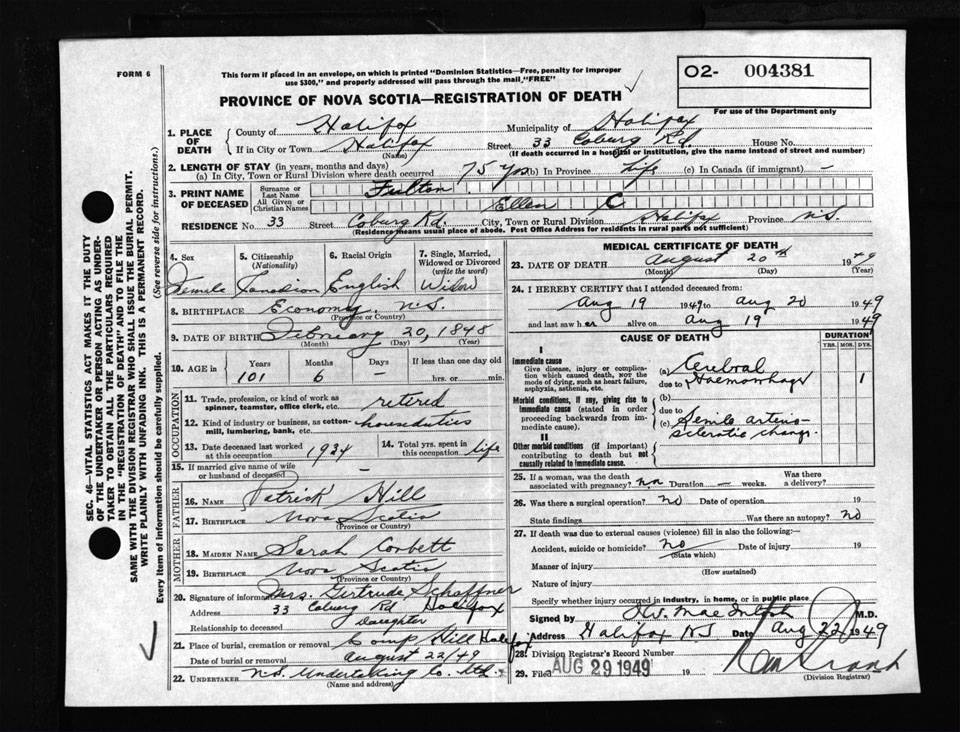 FORM 6
This form if placed in an envelope, on which is printed "Dominion Statistics—Free, penalty for improper
use $300," and properly addressed will pass through the mail, "FREE"
O2- 004381
For use of the Department only
PROVINCE OF NOVA SCOTIA—REGISTRATION OF DEATH
1. PLACE OF DEATH
County of Halifax Municipality of Halifax
If in City or Town Halifax (Name) Street 33 Coburg Rd. House No.
(If death occurred in a hospital or institution, give the name instead of street and number)
2. LENGTH OF STAY (in years, months and days)
(a) In City, Town or Rural Division where death occurred 75 yrs (b) In Province Life (c) In Canada (if immigrant) –
3. PRINT NAME OF DECEASED
Surname or Last Name Fulton
All Given or Christian Names Ellen C
RESIDENCE No. 33 Street Coburg Rd. City, Town or Rural Division Halifax Province N.S.
(Residence means usual place of abode. Post Office Address for residents in rural parts not sufficient)
4. Sex Female
5. Citizenship (Nationality) Canadian
6. Racial Origin English
7. Single, Married, Widowed or Divorced (write the word) Widow
8. BIRTHPLACE Economy N.S. (Province or Country)
9. DATE OF BIRTH February 20, 1848
(Month) (Day) (Year)
10. AGE in Years 101 Months 6 Days – If less than one day old hrs. or min.
OCCUPATION
11. Trade, profession, or kind of work as spinner, teamster, office clerk, etc. retired
12. Kind of industry or business, as cotton-mill, lumbering, bank, etc. houseduties
13. Date deceased last worked at this occupation 1924
14. Total yrs. spent in this occupation life
15. If married give name of wife or husband of deceased –
FATHER
16. NAME Patrick Hill
17. BIRTHPLACE Nova Scotia (Province or Country)
MOTHER
18. MAIDEN NAME Sarah Corbett
19. BIRTHPLACE Nova Scotia (Province or Country)
20. Signature of informant Mrs. Gertrude Schaffner
Address 33 Coburg Rd Halifax
Relationship to deceased Daughter
21. Place of burial, cremation or removal Camp Hill Halifax
Date of burial or removal August 22/49
22. UNDERTAKER N.S. Undertaking Co. Ltd.
(Name and address)
MEDICAL CERTIFICATE OF DEATH
23. DATE OF DEATH August 20th 1949
(Month) (Day) (Year)
24. I HEREBY CERTIFY that I attended deceased from:
Aug 19 1949 to Aug 20 1949
and last saw her alive on Aug 19 1949
CAUSE OF DEATH
DURATION
YRS. MOS. DYS.
I
Immediate cause
Give disease, injury or complication which caused death, NOT the mode of dying, such as heart failure, asphyxia, asthenia, etc.
(a) Cerebral
due to Haemorrhage 1
Morbid conditions, if any, giving rise to immediate cause (stated in order proceeding backwards from immediate cause).
(b)
due to
(c) Senile arterio-
sclerotic change.
II
Other morbid conditions (if important) contributing to death but not causally related to immediate cause.
25. If a woman, was the death associated with pregnancy? no Duration – weeks. Was there a delivery?
26. Was there a surgical operation? no Date of operation 19
State findings Was there an autopsy? no
27. If death was due to external causes (violence) fill in also the following:—
Accident, suicide or homicide? no Date of injury 19
(State which)
Manner of injury
(How sustained)
Nature of injury
Specify whether injury occurred in industry, in home, or in public place
Signed by M.D.
Address Halifax N.S. Date Aug 22 1949
28. Division Registrar's Record Number
29. Filed AUG 29 1949 19
(Division Registrar)
SEC. 46—VITAL STATISTICS ACT MAKES IT THE DUTY
OF THE UNDERTAKER OR PERSON ACTING AS UNDER-
TAKER TO OBTAIN ALL THE PARTICULARS REQUIRED
IN THE "REGISTRATION OF DEATH" AND TO FILE THE
SAME WITH THE DIVISION REGISTRAR WHO SHALL ISSUE THE BURIAL PERMIT.
WRITE PLAINLY WITH UNFADING INK. THIS IS A PERMANENT RECORD.
Every item of information should be carefully supplied. (See reverse side for instructions.)